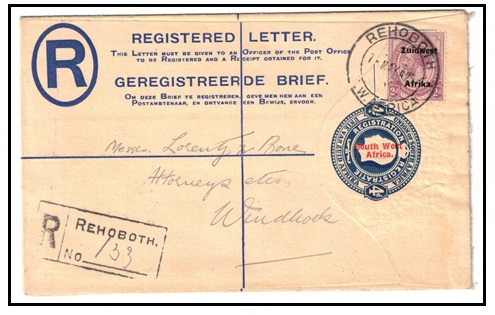 R
REGISTERED LETTER.
THIS LETTER MUST BE GIVEN TO AN OFFICER OF THE POST OFFICE
TO BE REGISTERED AND A RECEIPT OBTAINED FOR IT.
GEREGISTREERDE BRIEF.
OM DEZE BRIEF TE REGISTREREN, GEVE MEN HEM AAN EEN
POSTAMBTENAAR, EN ONTVANGE EEN BEWIJS, ERVOOR.
REHOBOTH
W. AFRICA
Zuidwest
Afrika.
REGISTRATION
South West
Africa.
REGISTRATIE
4D
Messrs. Lorentz & Bone
Attorneys etc
Windhoek
R
REHOBOTH.
No. 133